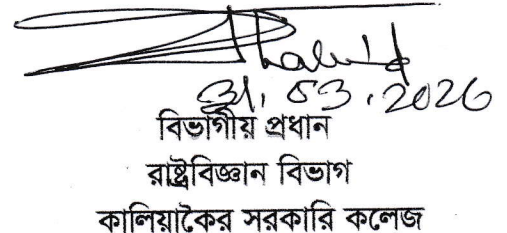 31.03.2026
বিভাগীয় প্রধান
রাষ্ট্রবিজ্ঞান বিভাগ
কালিয়াকৈর সরকারি কলেজ